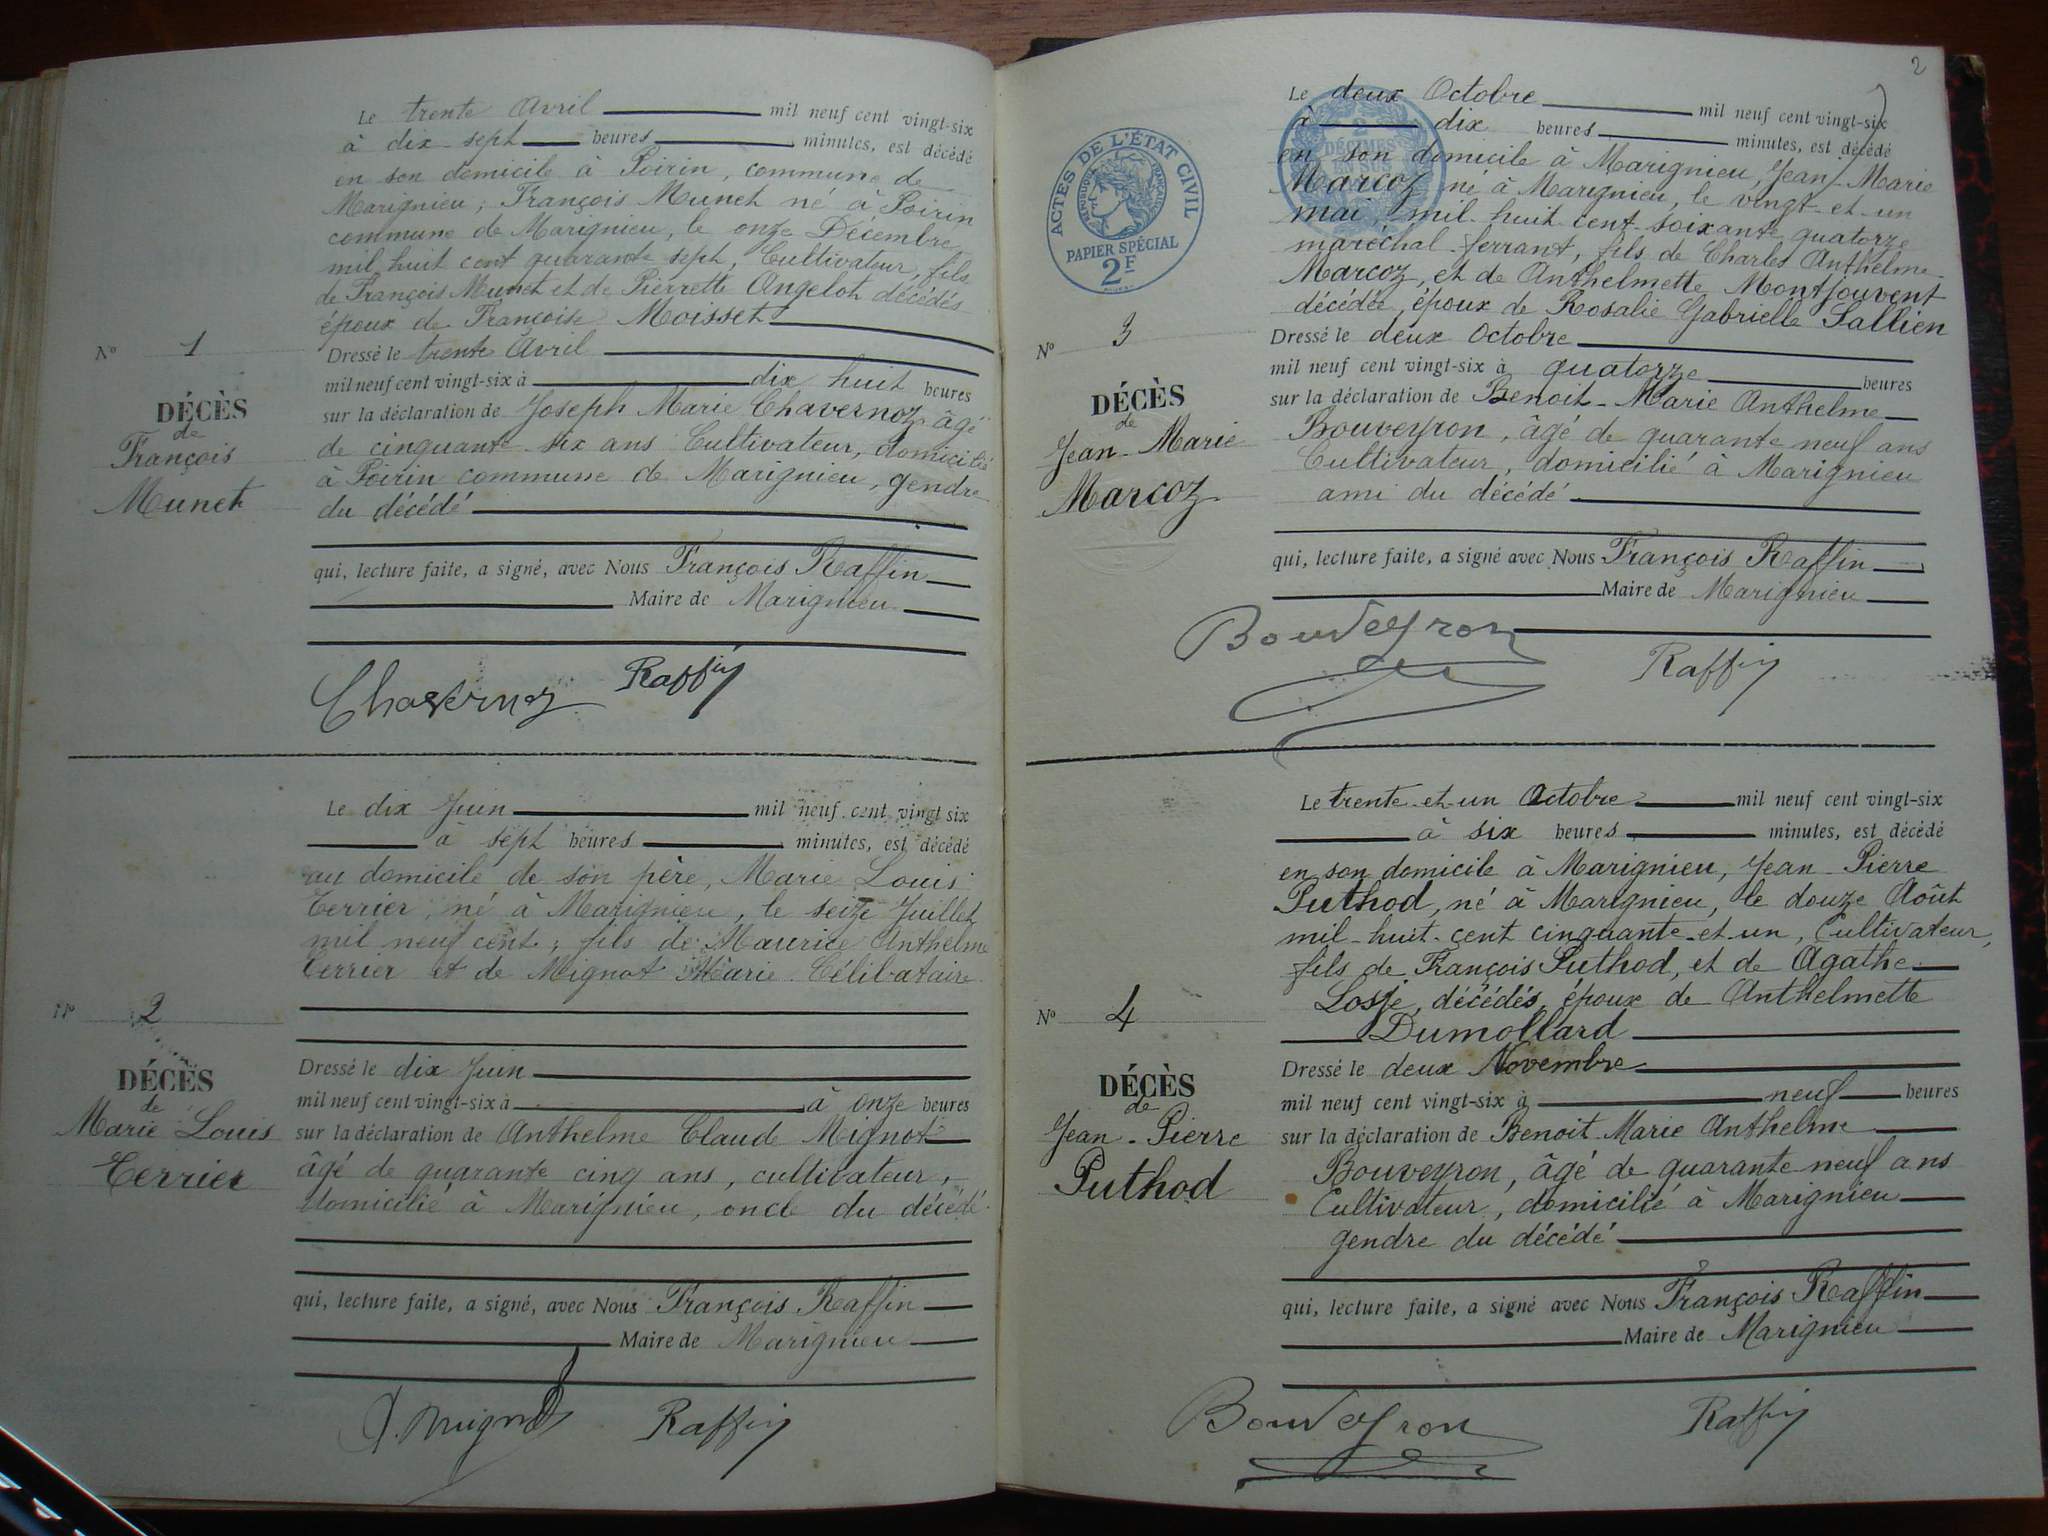 Le trente Avril mil neuf cent vingt-six
à dix-sept heures minutes, est décédé
en son domicile à Poirin, commune de
Marignieu, François Munet né à Poirin
commune de Marignieu, le onze Décembre
mil huit cent quarante sept, Cultivateur, fils
de François Munet et de Pierrette Angelot décédés
époux de Françoise Moisset
Nº 1
DÉCÈS
de
François
Munet
Dressé le trente Avril
mil neuf cent vingt-six à dix huit heures
sur la déclaration de Joseph Marie Chavernoz âgé
de cinquante-six ans Cultivateur, domicilié
à Poirin commune de Marignieu, gendre
du décédé
qui, lecture faite, a signé, avec Nous François Raffin
Maire de Marignieu
Chavernoz Raffin
Le dix Juin mil neuf cent vingt six
à sept heures minutes, est décédé
au domicile de son père, Marie Louis
Terrier, né à Marignieu, le seize Juillet
mil neuf cent, fils de Maurice Anthelme
Terrier et de Mignot Marie. Célibataire
Nº 2
DÉCÈS
de
Marie Louis
Terrier
Dressé le dix Juin
mil neuf cent vingt-six à à onze heures
sur la déclaration de Anthelme Claude Mignot
âgé de quarante cinq ans, cultivateur,
domicilié à Marignieu, oncle du décédé
qui, lecture faite, a signé, avec Nous François Raffin
Maire de Marignieu
Mignot Raffin
2
ACTES DE L'ÉTAT CIVIL
RÉPUBLIQUE FRANÇAISE
PAPIER SPÉCIAL
2F
2
DÉCIMES
EN SUS
Le deux Octobre mil neuf cent vingt-six
à dix heures minutes, est décédé
en son domicile à Marignieu, Jean-Marie
Marcoz né à Marignieu, le vingt-et-un
mai, mil-huit cent-soixante quatorze
maréchal-ferrant, fils de Charles Anthelme
Marcoz, et de Anthelmette Montjouvent
décédée, époux de Rosalie Gabrielle Sallien
Nº 3
DÉCÈS
de
Jean-Marie
Marcoz
Dressé le deux Octobre
mil neuf cent vingt-six à quatorze heures
sur la déclaration de Benoit-Marie Anthelme
Bouveyron, âgé de quarante neuf ans
Cultivateur, domicilié à Marignieu
ami du décédé
qui, lecture faite, a signé avec Nous François Raffin
Maire de Marignieu
Bouveyron Raffin
Le trente-et-un Octobre mil neuf cent vingt-six
à six heures minutes, est décédé
en son domicile à Marignieu, Jean-Pierre
Puthod, né à Marignieu, le douze Août
mil-huit-cent cinquante-et-un, Cultivateur,
fils de François Puthod, et de Agathe
décédés, époux de Anthelmette
Dumollard
Nº 4
DÉCÈS
de
Jean-Pierre
Puthod
Dressé le deux Novembre
mil neuf cent vingt-six à neuf heures
sur la déclaration de Benoit Marie Anthelme
Bouveyron, âgé de quarante-neuf ans
Cultivateur, domicilié à Marignieu
gendre du décédé
qui, lecture faite, a signé avec Nous François Raffin
Maire de Marignieu
Bouveyron Raffin